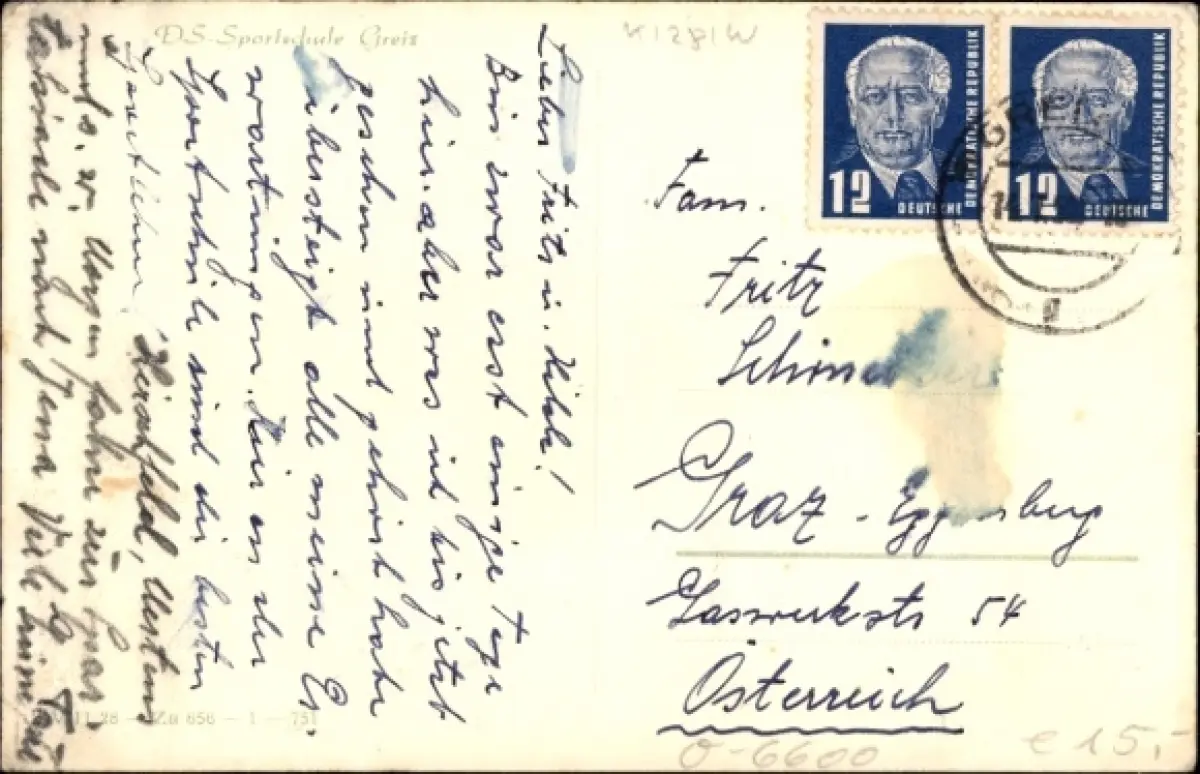 DS-Sportschule Greiz
K1281W
Lieber Fritz u. Hilde!
Bin zwar erst einige Tage
hier. aber was ich bis jetzt
gesehen und gehört habe
übersteigt alle meine Er-
wartungen. Hier an der
Sportschule sind die besten
Hersfeld, Urstm
u. s. w. Morgen fahre zur Spar-
takiade nach Jena Viele
12 DEUTSCHE DEMOKRATISCHE REPUBLIK
12 DEUTSCHE DEMOKRATISCHE REPUBLIK
GREIZ
Fam.
Fritz
Graz - Eggenberg
Gaswerkstr 54
Österreich
28 - Ku 656 - 1 - 751
O-6600
€ 15,-